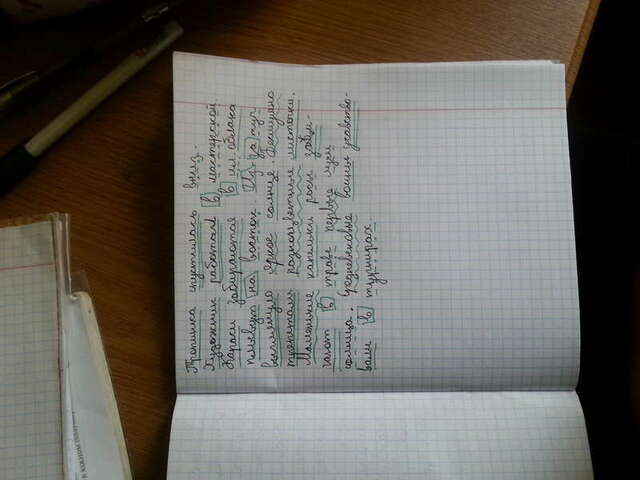 в южном полуш
Тропинка спустилась вниз.
Художник работал в мастерской.
Караси забираются в ил. облака
плывут на восток. Из-за туч
выглянуло яркое солнце. Бесшумно
трепетали разноцветные листочки.
Маленькие капельки росы зажи-
гают в траве первые лучи
солнца. Средневековые воины учавство-
вали в турнирах.